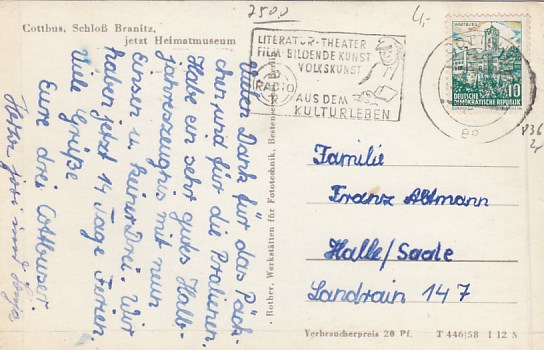 Cottbus, Schloß Branitz,
jetzt Heimatmuseum
2500
4,-
LITERATUR · THEATER
FILM · BILDENDE KUNST
VOLKSKUNST
RADIO
AUS DEM
KULTURLEBEN
WARTBURG
10
DEUTSCHE
DEMOKRATISCHE REPUBLIK
Vielen Dank für das Päck-
chen und für die
Habe ein sehr gutes Halb-
jahreszeugnis mit neun
Einsen u. keiner Drei. Wir
haben jetzt 14 Tage Ferien.
Viele Grüße
Eure drei Cottbuser
und
Rother, Werkstätten für Fototechnik,
Familie
Franz Altmann
Halle/Saale
Landrain 147
Verbraucherpreis 20 Pf. T 446/58 1 12 A